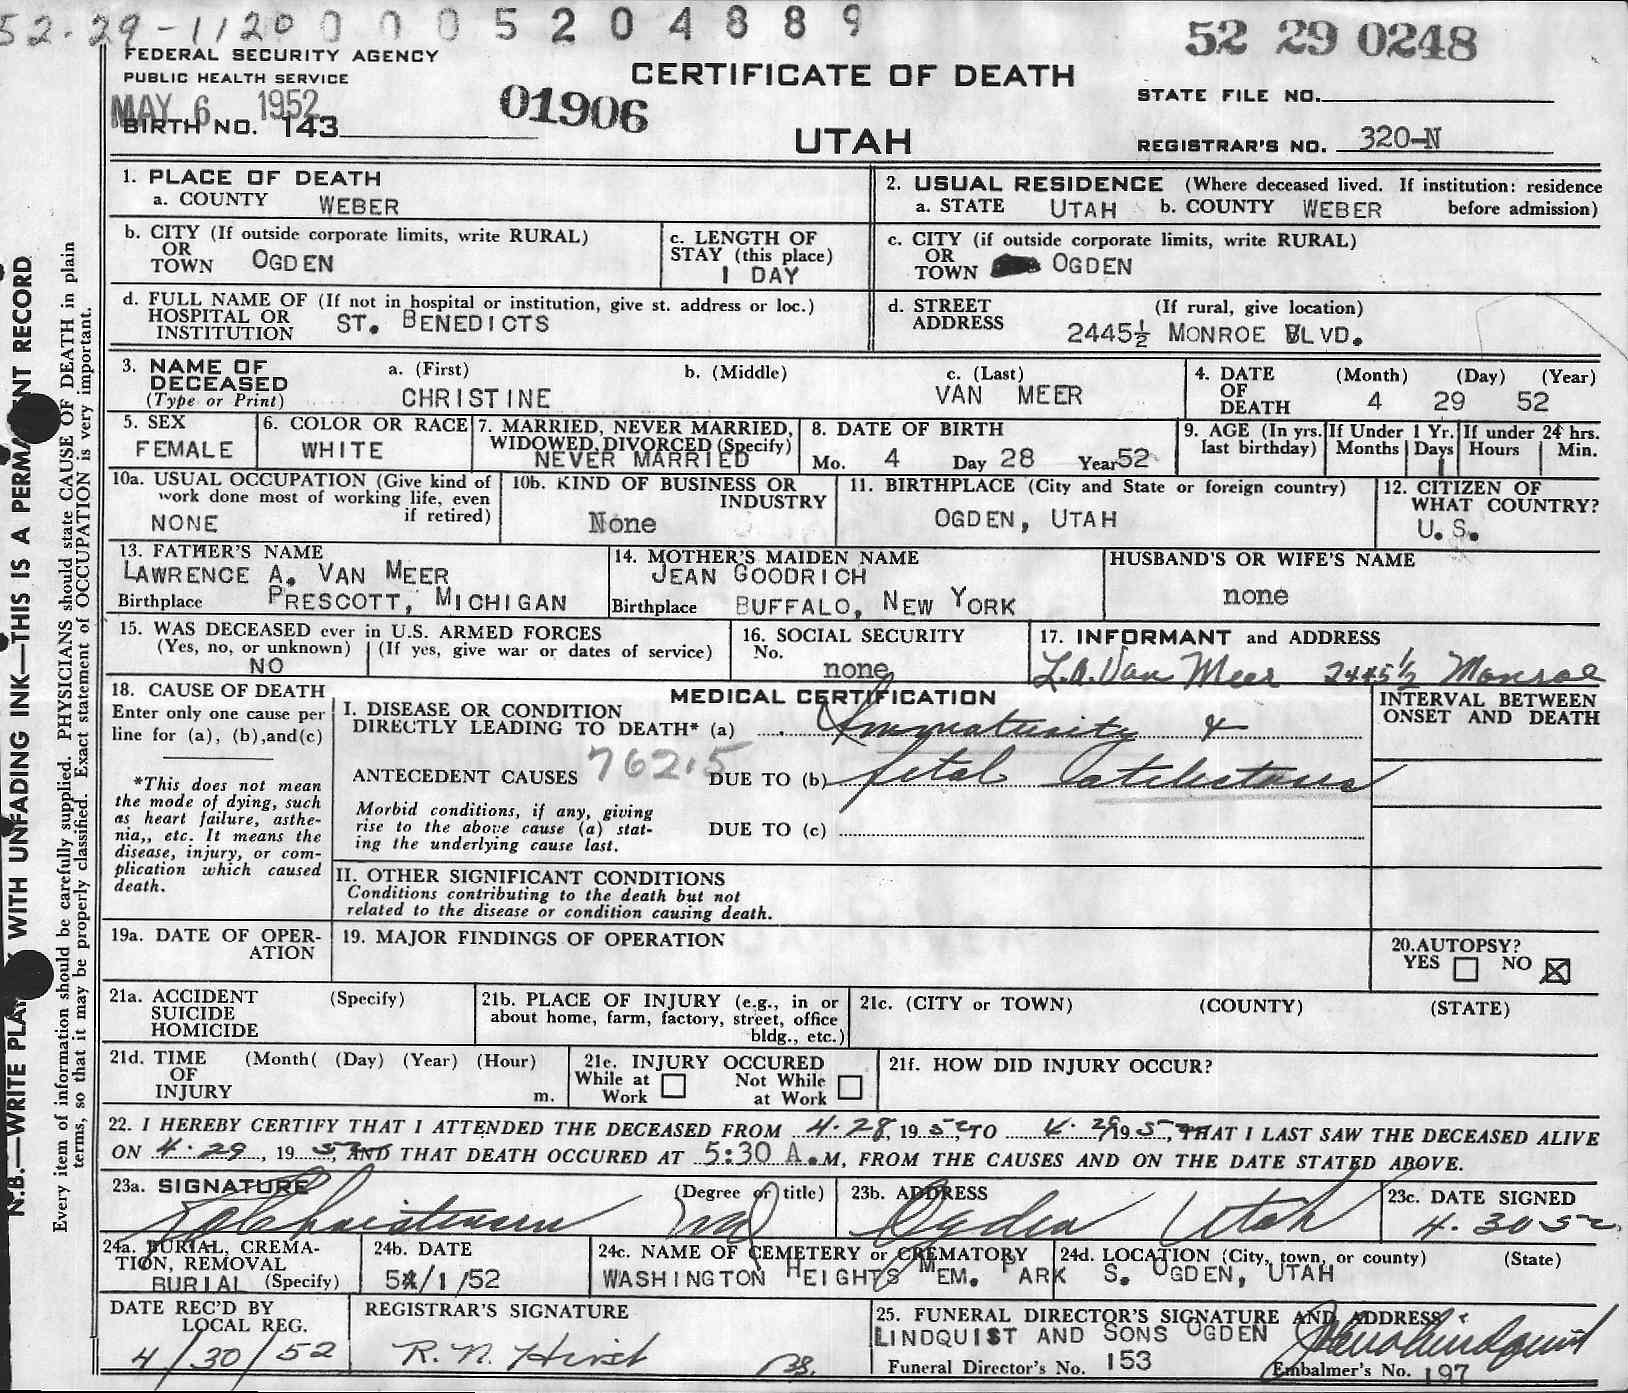 52-29-1120 0 0 0 5 2 0 4 8 8 9
52 29 0248
FEDERAL SECURITY AGENCY
PUBLIC HEALTH SERVICE
MAY 6 1952
BIRTH NO. 143
01906
CERTIFICATE OF DEATH
UTAH
STATE FILE NO.
REGISTRAR'S NO. 320-N
1. PLACE OF DEATH
a. COUNTY WEBER
2. USUAL RESIDENCE (Where deceased lived. If institution: residence
a. STATE UTAH b. COUNTY WEBER before admission)
b. CITY (If outside corporate limits, write RURAL)
OR
TOWN OGDEN
c. LENGTH OF
STAY (this place)
1 DAY
c. CITY (if outside corporate limits, write RURAL)
OR
TOWN OGDEN
d. FULL NAME OF (If not in hospital or institution, give st. address or loc.)
HOSPITAL OR
INSTITUTION ST. BENEDICTS
d. STREET (If rural, give location)
ADDRESS 2445½ MONROE BLVD.
3. NAME OF
DECEASED
(Type or Print)
a. (First) b. (Middle) c. (Last)
CHRISTINE VAN MEER
4. DATE (Month) (Day) (Year)
OF
DEATH 4 29 52
5. SEX
FEMALE
6. COLOR OR RACE
WHITE
7. MARRIED, NEVER MARRIED,
WIDOWED, DIVORCED (Specify)
NEVER MARRIED
8. DATE OF BIRTH
Mo. 4 Day 28 Year 52
9. AGE (In yrs.
last birthday)
If Under 1 Yr.
Months Days
1
If under 24 hrs.
Hours Min.
10a. USUAL OCCUPATION (Give kind of
work done most of working life, even
if retired)
NONE
10b. KIND OF BUSINESS OR
INDUSTRY
None
11. BIRTHPLACE (City and State or foreign country)
OGDEN, UTAH
12. CITIZEN OF
WHAT COUNTRY?
U. S.
13. FATHER'S NAME
LAWRENCE A. VAN MEER
Birthplace PRESCOTT, MICHIGAN
14. MOTHER'S MAIDEN NAME
JEAN GOODRICH
Birthplace BUFFALO, NEW YORK
HUSBAND'S OR WIFE'S NAME
none
15. WAS DECEASED ever in U.S. ARMED FORCES
(Yes, no, or unknown) (If yes, give war or dates of service)
NO
16. SOCIAL SECURITY
No.
none
17. INFORMANT and ADDRESS
L.A. Van Meer 2445½ Monroe
18. CAUSE OF DEATH
Enter only one cause per
line for (a), (b),and(c)
*This does not mean
the mode of dying, such
as heart failure, asthe-
nia,, etc. It means the
disease, injury, or com-
plication which caused
death.
MEDICAL CERTIFICATION
I. DISEASE OR CONDITION
DIRECTLY LEADING TO DEATH* (a) Immaturity &
762.5
ANTECEDENT CAUSES DUE TO (b) fetal atelectasis
Morbid conditions, if any, giving
rise to the above cause (a) stat-
ing the underlying cause last.
DUE TO (c)
II. OTHER SIGNIFICANT CONDITIONS
Conditions contributing to the death but not
related to the disease or condition causing death.
INTERVAL BETWEEN
ONSET AND DEATH
19a. DATE OF OPER-
ATION
19. MAJOR FINDINGS OF OPERATION
20.AUTOPSY?
YES NO
21a. ACCIDENT (Specify)
SUICIDE
HOMICIDE
21b. PLACE OF INJURY (e.g., in or
about home, farm, factory, street, office
bldg., etc.)
21c. (CITY or TOWN) (COUNTY) (STATE)
21d. TIME (Month( (Day) (Year) (Hour)
OF
INJURY m.
21e. INJURY OCCURED
While at Not While
Work at Work
21f. HOW DID INJURY OCCUR?
22. I HEREBY CERTIFY THAT I ATTENDED THE DECEASED FROM 4-28, 19 52, TO 4-29 19 52, THAT I LAST SAW THE DECEASED ALIVE
ON 4-29, 19 52, AND THAT DEATH OCCURED AT 5:30 A.M, FROM THE CAUSES AND ON THE DATE STATED ABOVE.
23a. SIGNATURE (Degree or title)
Christensen MD
23b. ADDRESS
Ogden Utah
23c. DATE SIGNED
4-30 52
24a. BURIAL, CREMA-
TION, REMOVAL
BURIAL (Specify)
24b. DATE
5/1/52
24c. NAME OF CEMETERY or CREMATORY
WASHINGTON HEIGHTS MEM. PARK
24d. LOCATION (City, town, or county) (State)
S. OGDEN, UTAH
DATE REC'D BY
LOCAL REG.
4/30/52
REGISTRAR'S SIGNATURE
R. N. Hirst
25. FUNERAL DIRECTOR'S SIGNATURE AND ADDRESS
LINDQUIST AND SONS OGDEN
Funeral Director's No. 153
Embalmer's No. 197
N.B.—WRITE WITH UNFADING INK—THIS IS A RECORD
Every item of information should be carefully supplied. PHYSICIANS should state CAUSE OF DEATH in plain
terms, so that it may be properly classified. Exact statement of OCCUPATION is very important.